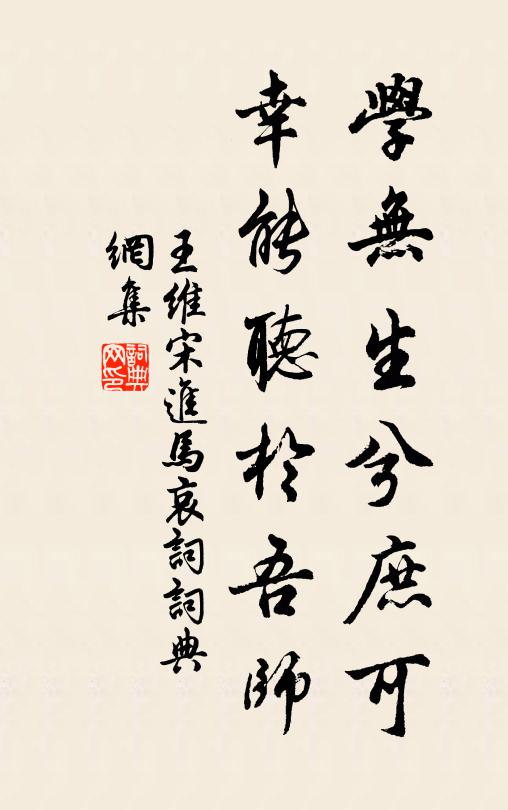 學無生兮庶可
幸能聽於吾師
王維宋進馬哀詞詞典
網集
詞典網印